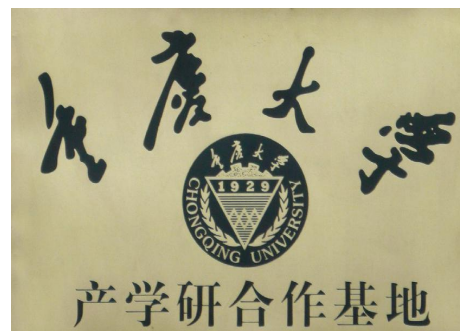 重庆大学
重庆大学
1929
CHONGQING UNIVERSITY
产学研合作基地